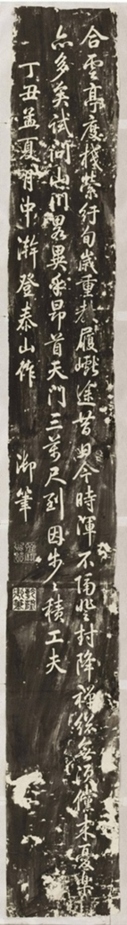 合雲亭庋棧縈紆旬歲重教履巉途昔日今時渾不隔登封降禪總無須僕來憂樂
亦多矣試問山門畧異乎昂首天門三萬尺到因步步積工夫
丁丑孟夏月中澣登泰山作
御筆